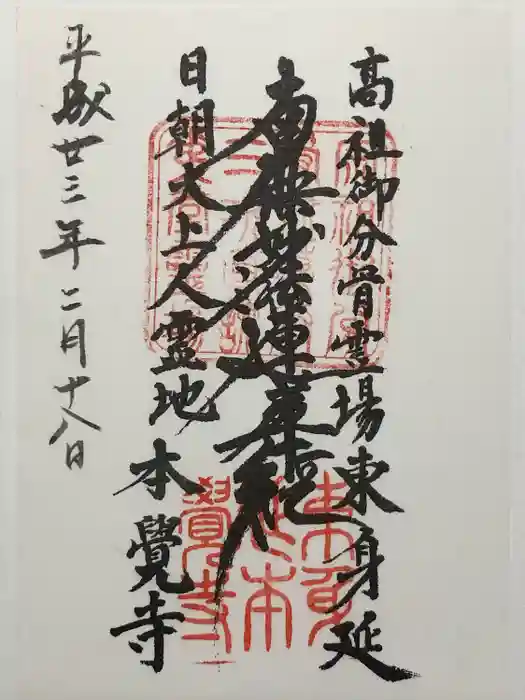 高祖御分骨霊場東身延
南無妙法蓮華経
日朝大上人霊地
本覺寺
平成廿三年二月十八日
東身延本覺寺